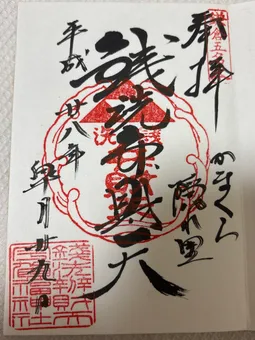 奉拝
かまくら
隠れ里
銭洗弁財天
平成廿八年
皐月廿九日